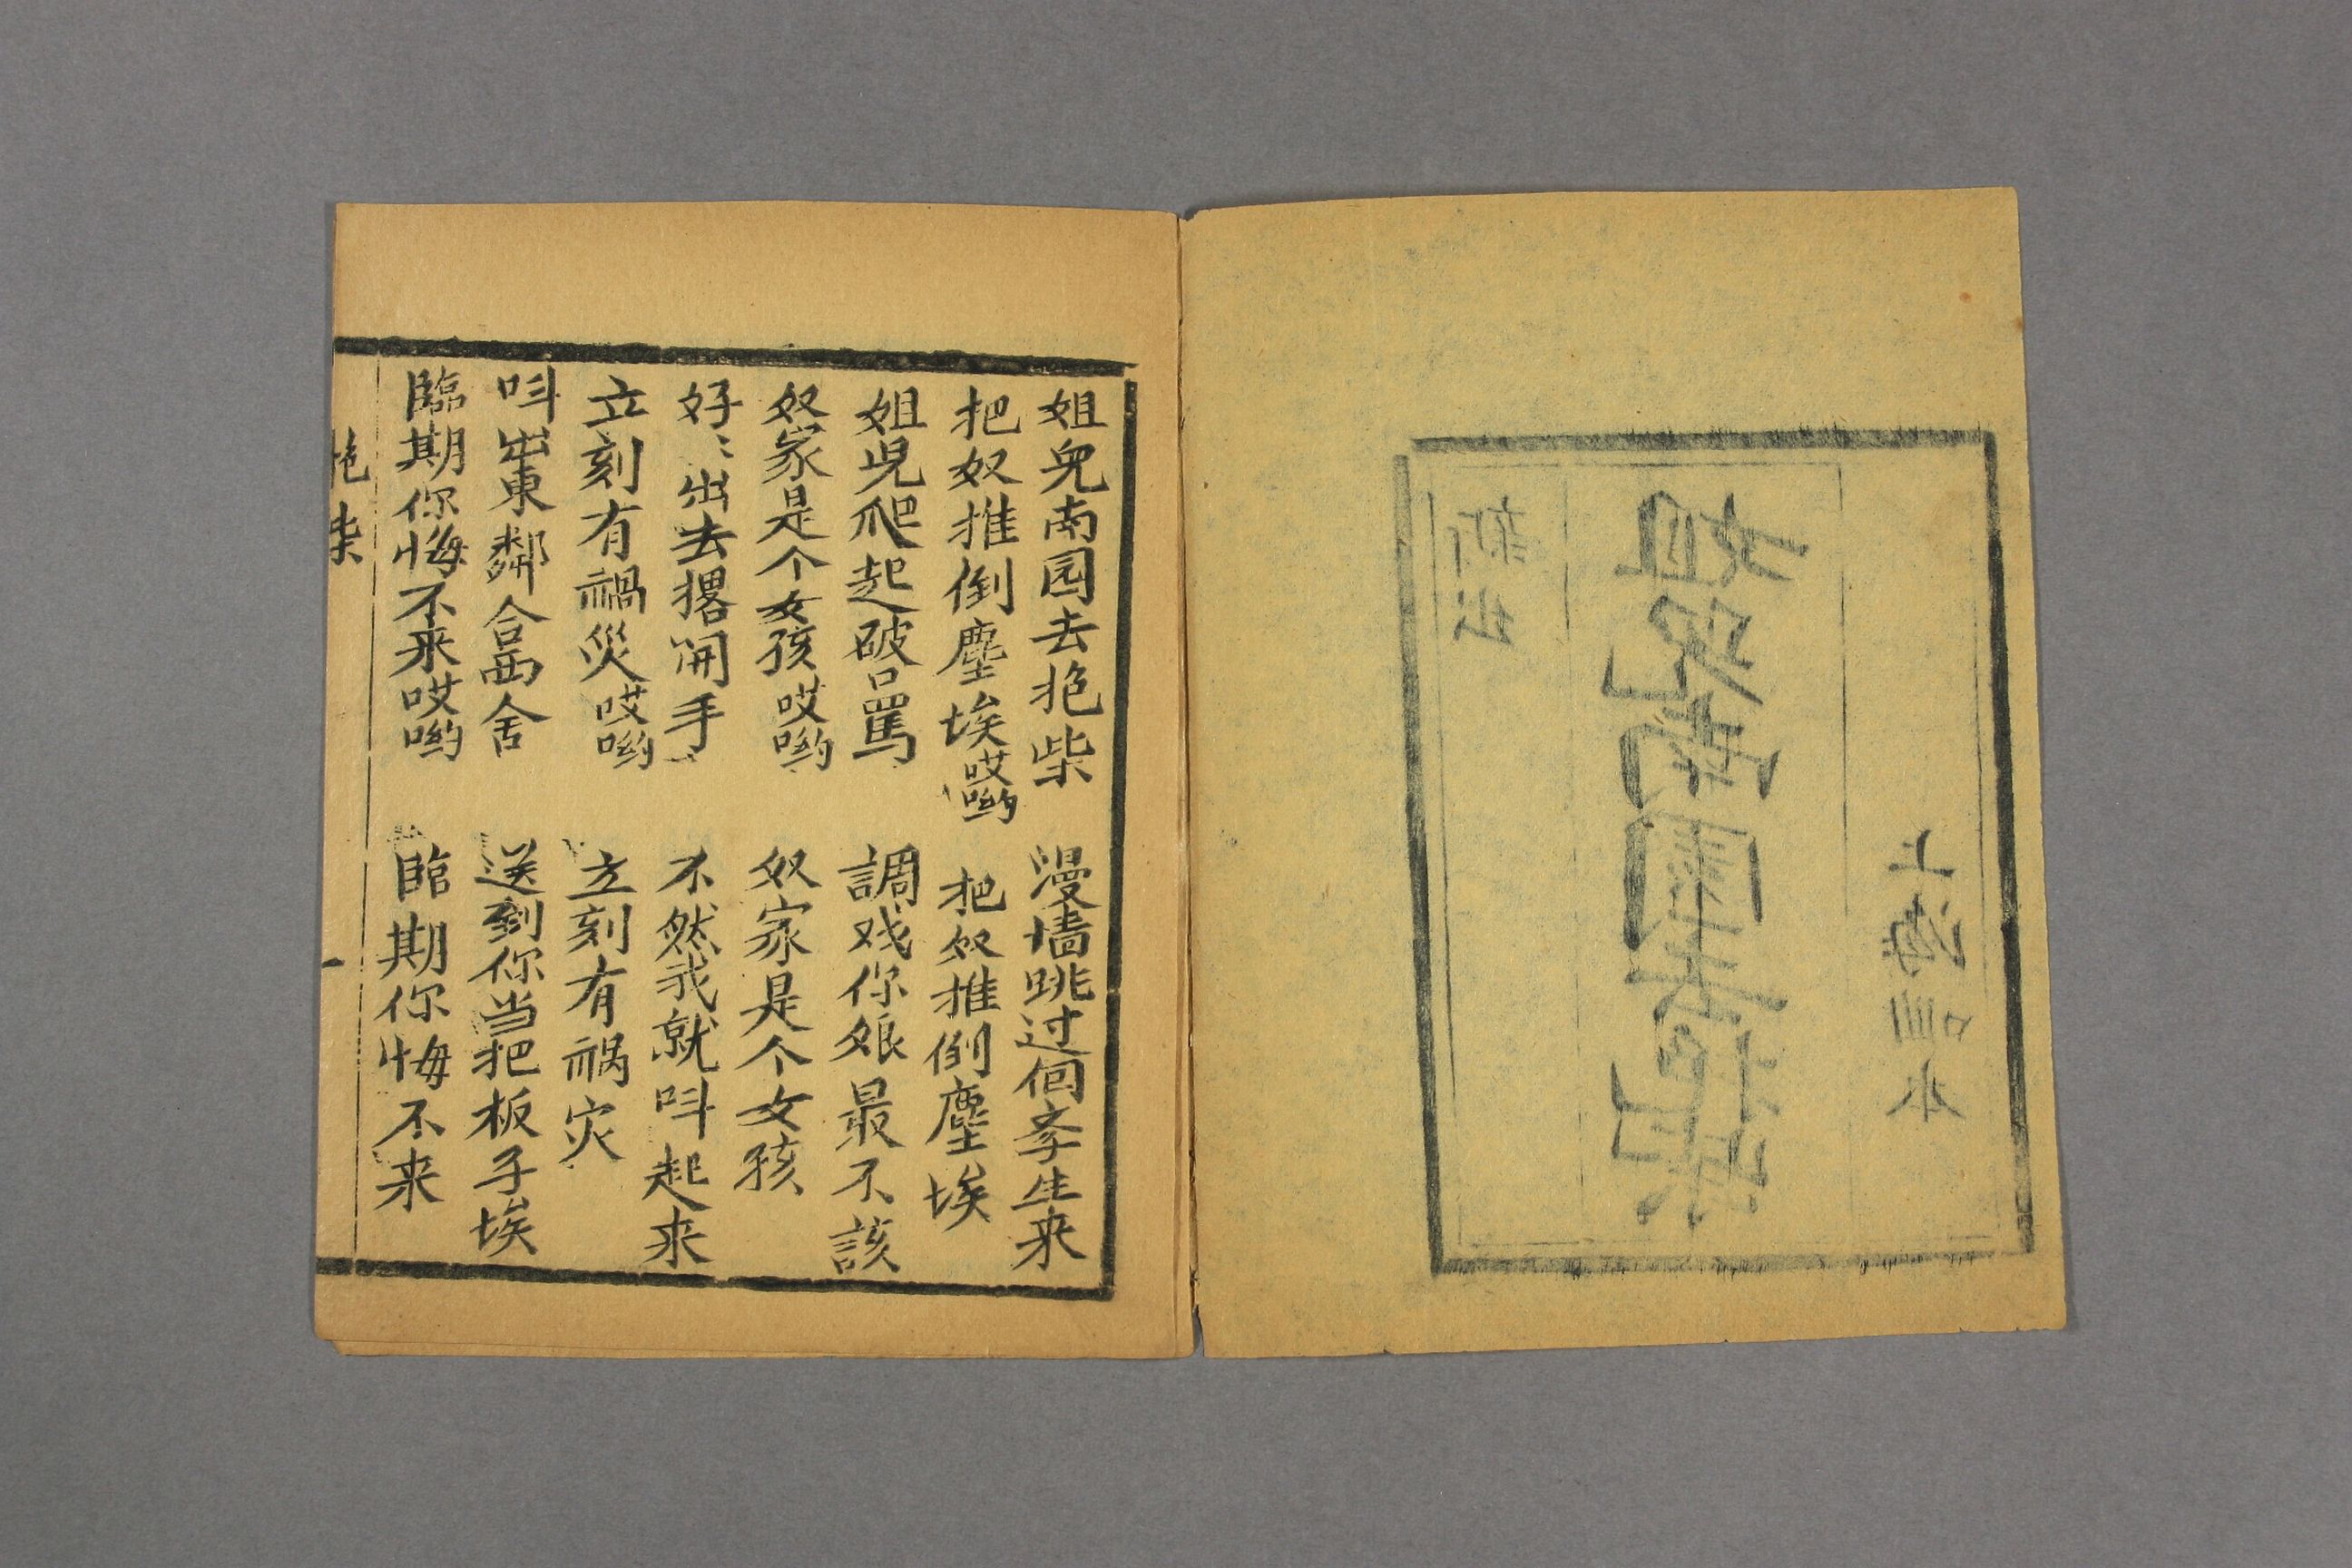 上海唱本
姐児南園去抱柴
新出
姐免南园去抱柴 漫墙跳过個李生来
把奴推倒塵埃哎哟 把奴推倒塵埃
姐児爬起破口罵 調戏你娘最不該
奴家是个女孩哎哟 奴家是个女孩
好〻出去撂開手 不然我就呌起来
立刻有禍災哎哟 立刻有祸灾
呌出東鄰合西舍 送到你当把板子埃
臨期你悔不来哎哟 臨期你悔不来
抱柴
一